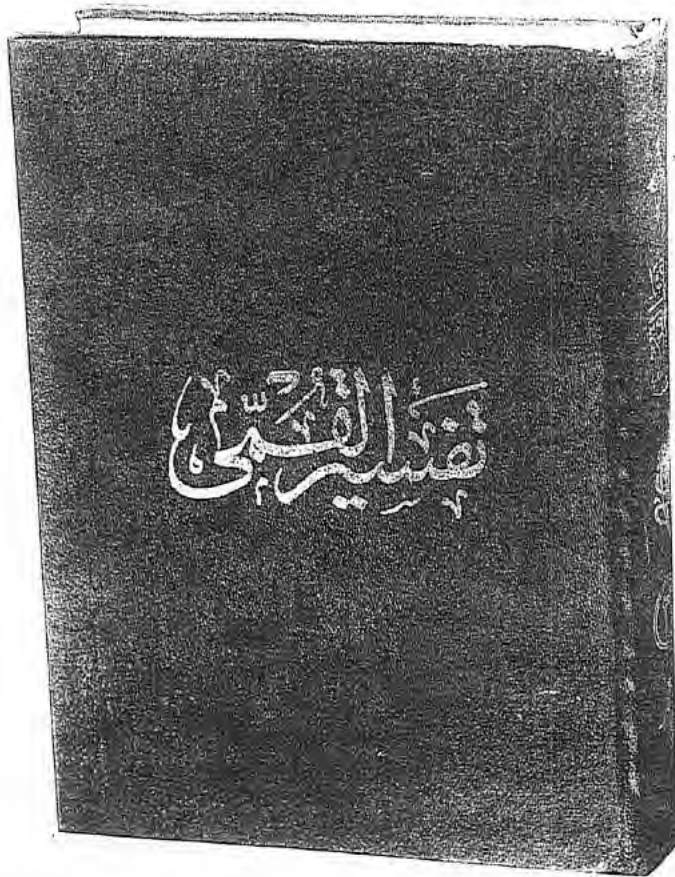 تفسير القمّى